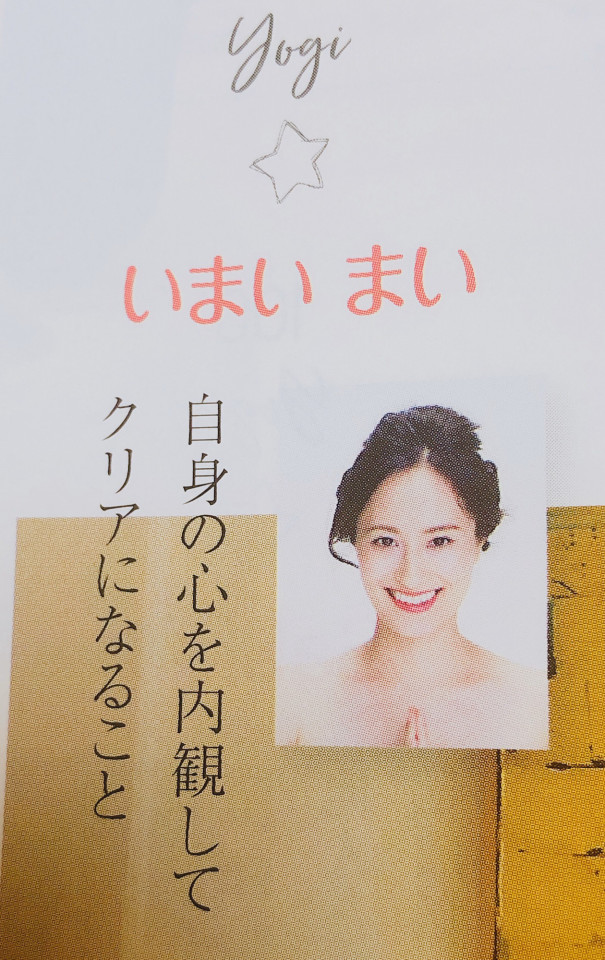 Yogi
いまい まい
自身の心を内観して
クリアになること